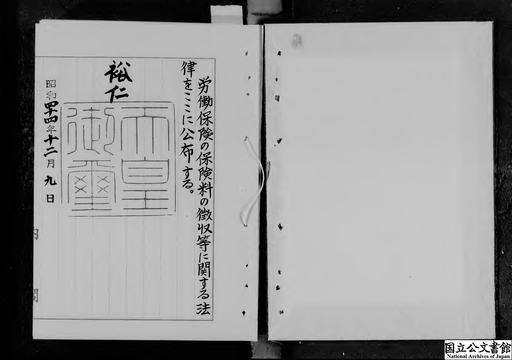 労働保険の保険料の徴収等に関する法
律をここに公布する。
裕仁
天皇
御璽
昭和四十四年十二月九日
内閣
国立公文書館
National Archives of Japan